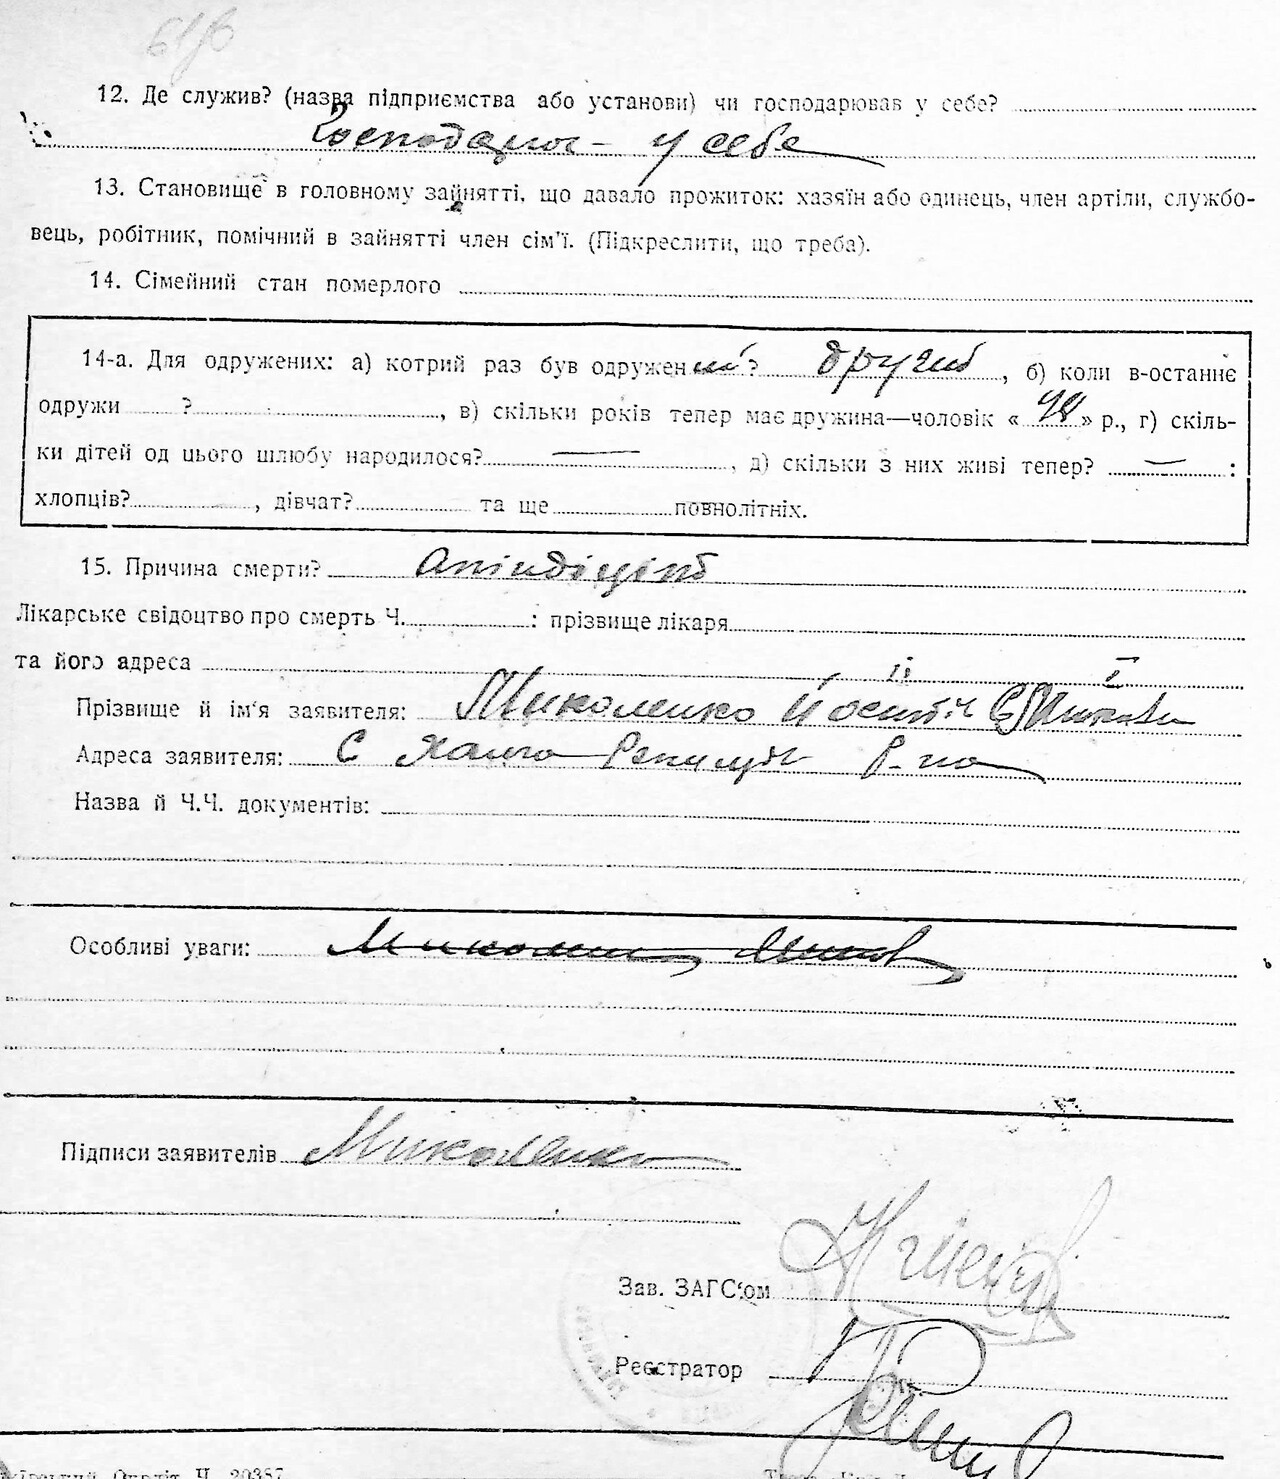 12. Де служив? (назва підприємства або установи) чи господарював у себе?
Господарює - у себе
13. Становище в головному зайнятті, що давало прожиток: хазяїн або одинець, член артіли, службо-
вець, робітник, помічний в зайнятті член сім'ї. (Підкреслити, що треба).
14. Сімейний стан померлого
14-а. Для одружених: а) котрий раз був одружений? другий, б) коли в-останнє
одружи ?, в) скільки років тепер має дружина—чоловік « 48 » р., г) скіль-
ки дітей од цього шлюбу народилося? —, д) скільки з них живі тепер? — :
хлопців?, дівчат? та ще повнолітніх.
15. Причина смерти? апіндіціт
Лікарське свідоцтво про смерть Ч. : прізвище лікаря
та його адреса
Прізвище й ім'я заявителя: Миколенко
Адреса заявителя: С р-на
Назва й Ч.Ч. документів:
Особливі уваги:
Підписи заявителів Миколенко
Зав. ЗАГС'ом
Реєстратор
Ч. 20387